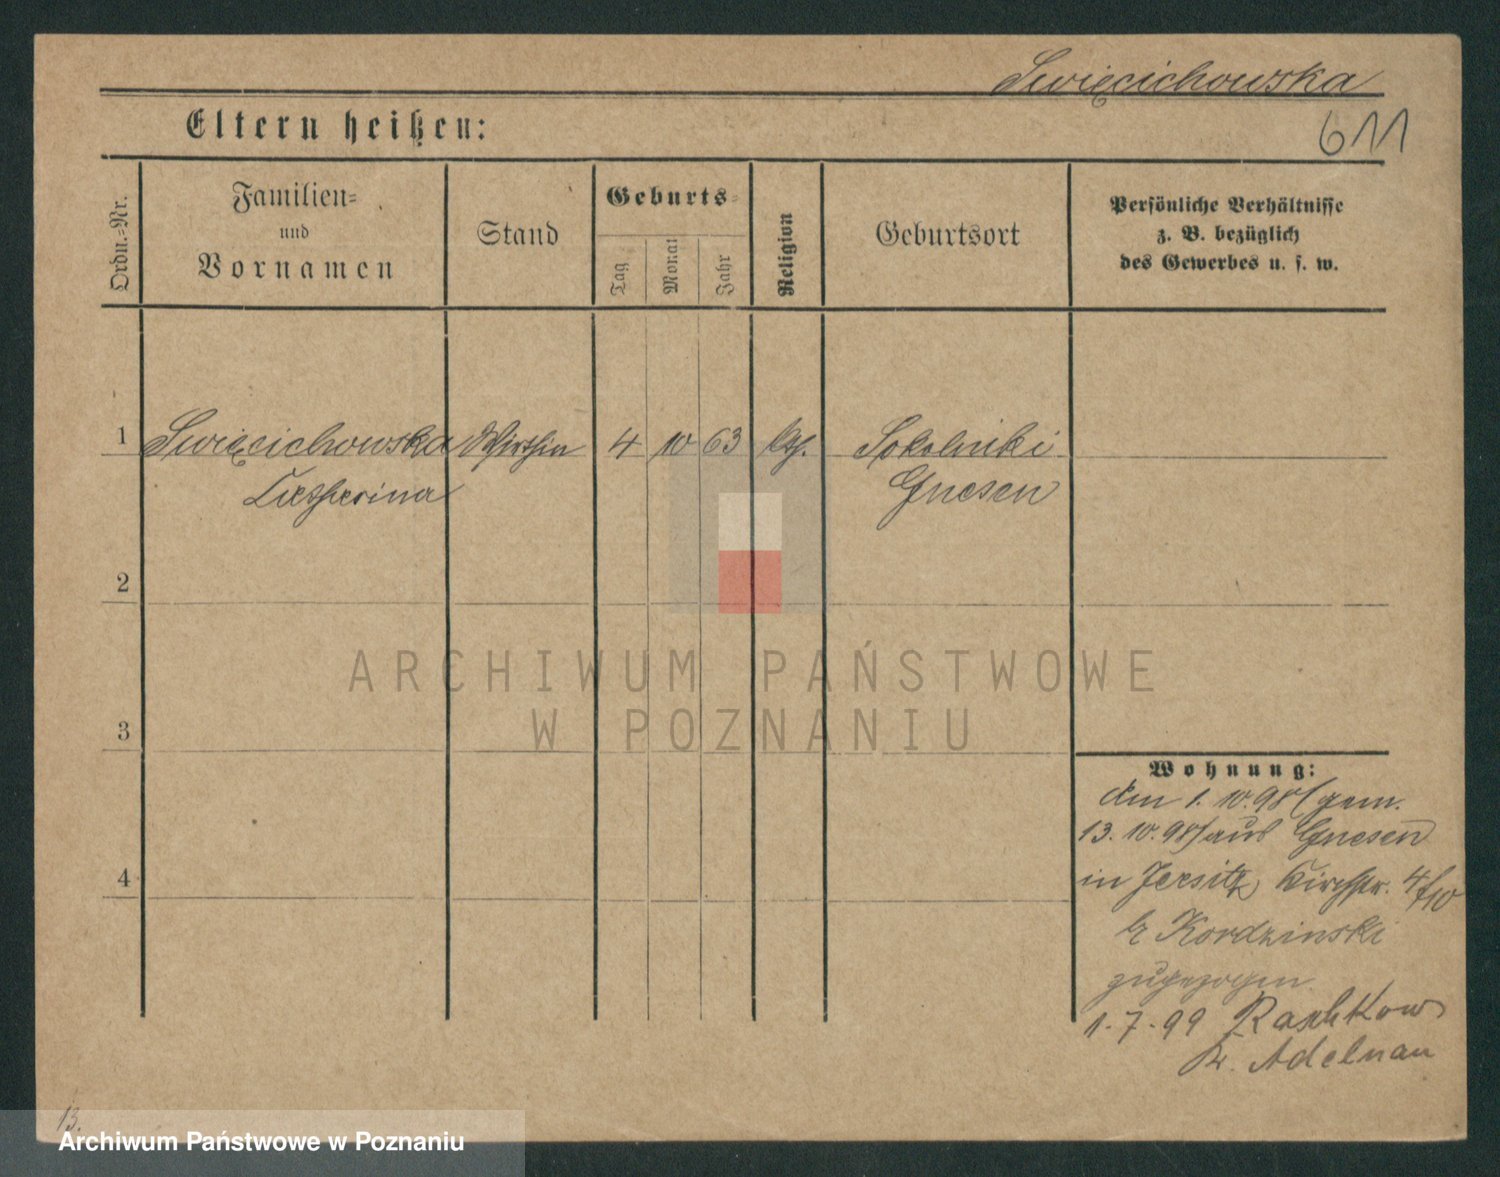 Święcichowska
611
Eltern heißen:
Ordn.=Nr.
Familien=
und
Vornamen
Stand
Geburts=
Tag
Monat
Jahr
Religion
Geburtsort
Persönliche Verhältnisse
z. B. bezüglich
des Gewerbes u. s. w.
1 Święcichowska Wirthin 4 10 63 kth. Sokolniki
Catharina Gnesen
2
3
4
ARCHIWUM PAŃSTWOWE
W POZNANIU
Wohnung:
Am 1. 10. 98 (gem.
13. 10. 98) aus Gnesen
in Jersitz, Kirchstr. 4
br Kordzinski
zugezogen
1. 7. 99 Raschkow
Kr. Adelnau
13.
Archiwum Państwowe w Poznaniu